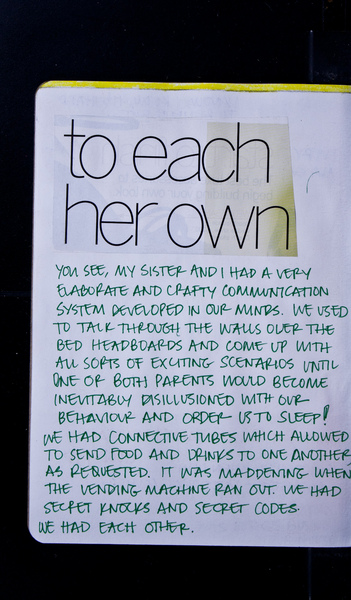 to each
her own
YOU SEE, MY SISTER AND I HAD A VERY
ELABORATE AND CRAFTY COMMUNICATION
SYSTEM DEVELOPED IN OUR MINDS. WE USED
TO TALK THROUGH THE WALLS OVER THE
BED HEADBOARDS AND COME UP WITH
ALL SORTS OF EXCITING SCENARIOS UNTIL
ONE OR BOTH PARENTS WOULD BECOME
INEVITABLY DISILLUSIONED WITH OUR
BEHAVIOUR AND ORDER US TO SLEEP!
WE HAD CONNECTIVE TUBES WHICH ALLOWED
TO SEND FOOD AND DRINKS TO ONE ANOTHER
AS REQUESTED. IT WAS MADDENING WHEN
THE VENDING MACHINE RAN OUT. WE HAD
SECRET KNOCKS AND SECRET CODES.
WE HAD EACH OTHER.